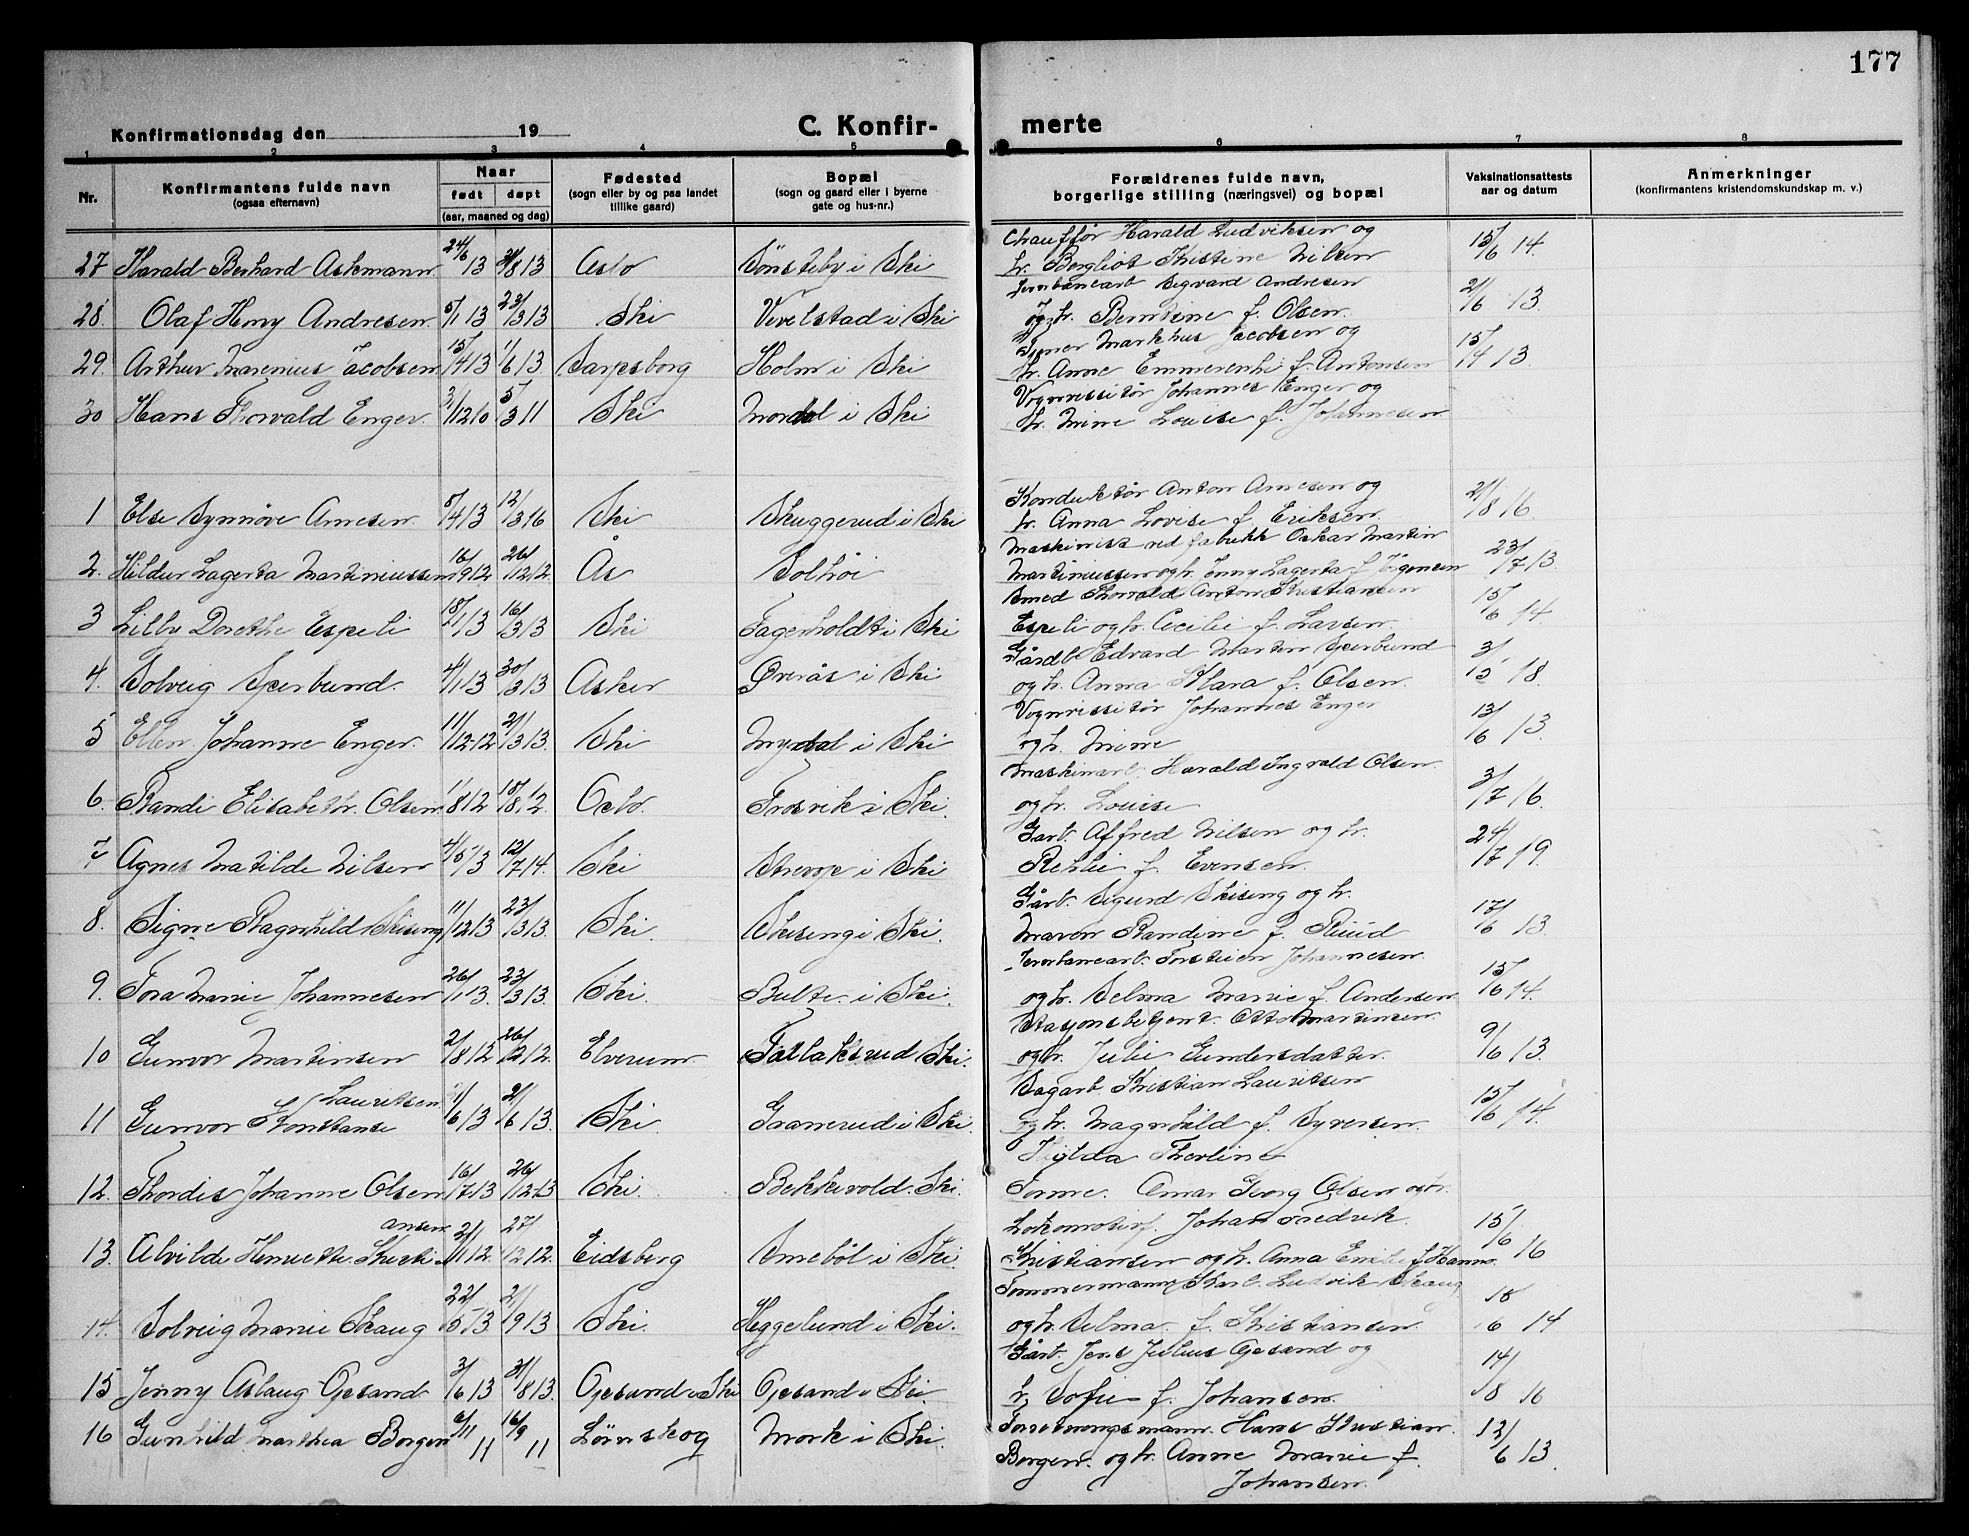 177
Konfirmationsdag den 19
C. Konfir- merte
1 2 3 4 5 6 7 8
Nr. Konfirmantens fulde navn (ogsaa efternavn) Naar født døpt (aar, maaned og dag) Fødested (sogn eller by og paa landet tillike gaard) Bopæl (sogn og gaard eller i byerne gate og hus-nr.) Forældrenes fulde navn, borgerlige stilling (næringsvei) og bopæl Vaksinationsattests aar og datum Anmerkninger (konfirmantens kristendomskundskap m. v.)
Chauffør Harald Ludviksen og
27 Harald Berhard Askmann 24/6 13 /8 13 Oslo Sønsteby i Ski h. Bergliot Kristine Nilsen 15/6 14.
Jernbanearb Sigvard Andresen
28. Olaf Henry Andresen 5/1 13 23/3 13 Ski Vevelstad i Ski og h. Berntine f. Olsen. 21/6 13.
Markhus Jacobsen og
29. Arthur Marenius Jacobsen 15/4 13 1/6 13 Sarpsborg Holm i Ski h. Anne Emmerenhi f. Antonsen 15/4 13.
Vognvisitør Johannes Enger og
30 Hans Thorvald Enger. 3/12 10 5/3 11 Ski i Ski h. Mine Louise f. Johannesen
Konduktør Anton Arnesen og
1 Else Synnøve Arnesen. 5/4 13 12/3 16 Ski Skuggerud i Ski h. Anna Lovise f. Eriksen. 21/8 16.
Maskinist ved fabrikk Oskar Martin
2. Hildur Lagerta Martiniussen 16/9 12 26/12 12 Ås Solhøi Martiniussen og h. Jenny Lagerta f Jörgensen 23/7 13.
Smed Thorvald Anton Kristiansen
3 Lilly Dorethe Espeli 18/1 13 16/3 13 Ski Fagerholdt i Ski Espeli og h. Cecilie f. Larsen. 15/6 14
Gårdb. Edvard Marten
4. Solveig 4/1 13 30/3 13 Asker Øverås i Ski og h. Anna Klara f. Olsen. 3/ 18.
Vognvissitør Johannes Enger
5 Ellen Johanne Enger. 11/12-12 2/3 13. Ski i Ski og h. Mine 13/6 13.
Maskinarb. Harald Ingvald Olsen.
6. Randi Elisabeth. Olsen 1/8 12 18/8 12. Oslo. Frosvik i Ski. og h. Louise 3/7 16.
Garb. Alfred Nilsen og h.
7 Agnes Matilde Nilsen 4/5 13 12/7 14. Ski i Ski f. Evensen. 24/7 19.
Gårb. Sigurd Skiseng og h.
8. Signe Ragnhild Skiseng 11/12 13 23/3 13. Ski. Skiseng i Ski. Maren Randine f. Ruud 17/6 13.
Jernbanearb. Torstein Johannesen.
9. Tora Marie Johannesen 26/1 13. 23/3 13. Ski. Bulte i Ski. og h. Selma Marie f. Andersen 15/6 14.
Stasjonsbetjent. Otto Martinsen.
10 Gunvor Martinsen 2/8 12 26/12 12. Elverum. Tallaksrud Ski. og h. Julie Gundersdatter. 9/6 13.
Lauritsen Sagarb. Kristian Lauritsen
11 Gunvor Konstanse 1/6 13 2/6 13. Ski. Gaanerud i Ski. og h. Magnhild f. Syversen. 15/6 14.
Hylda Therline
12. Thordis Johanne Olsen 16/7 13 26/12-13 Ski. Bekkevold. Ski. Tomme. Omar Georg Olsen og h.
ansen Lokomotivf. Johan Fredrik.
13. Alvilde Henriette Kristi- 2/11 12. 27/12 12. Eidsberg i Ski. Kristiansen og h. Anna Emilie f. Hanns. 15/6 16
Tømmermann Karl Ludvik Skaug
14. Solveig Marie Skaug 22/5 13 21/9 13 Ski. Heggelund i Ski. og h. Selma f. Kristiansen. 18/6 14
Gårb. Jens Julius Gjesand og
15 Jenny Aslaug Gjesand 3/6 13 31/8 13. Gjesund i Ski Gjesand i Ski. h. Sofie f. Johansen. 14/8 16
Forretningsmann. Hans Kristian.
16 Gunhild Marthea Borgen 6/11 11 16/9 11 Lørnskog Mork i Ski. Borgen. og h. Anne Marie f. 12/6 13.
Johansen.